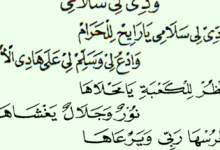 وَدِّى لِى سَلَامِى
دِّى لِى سَلَامِى يَا رَايِحْ لِلْحَرَامْ
وَادْعِ لِى وَسَلِّمْ لِى عَلَى هَادِى
ظُرْ لِلْكَعْبَةِ يَا مَحْلَاهَا
نُوْرٌ وَجَلَالٌ يَغْشَاهَا
رُسْهَا رَبِّى وَيَرْعَاهَا